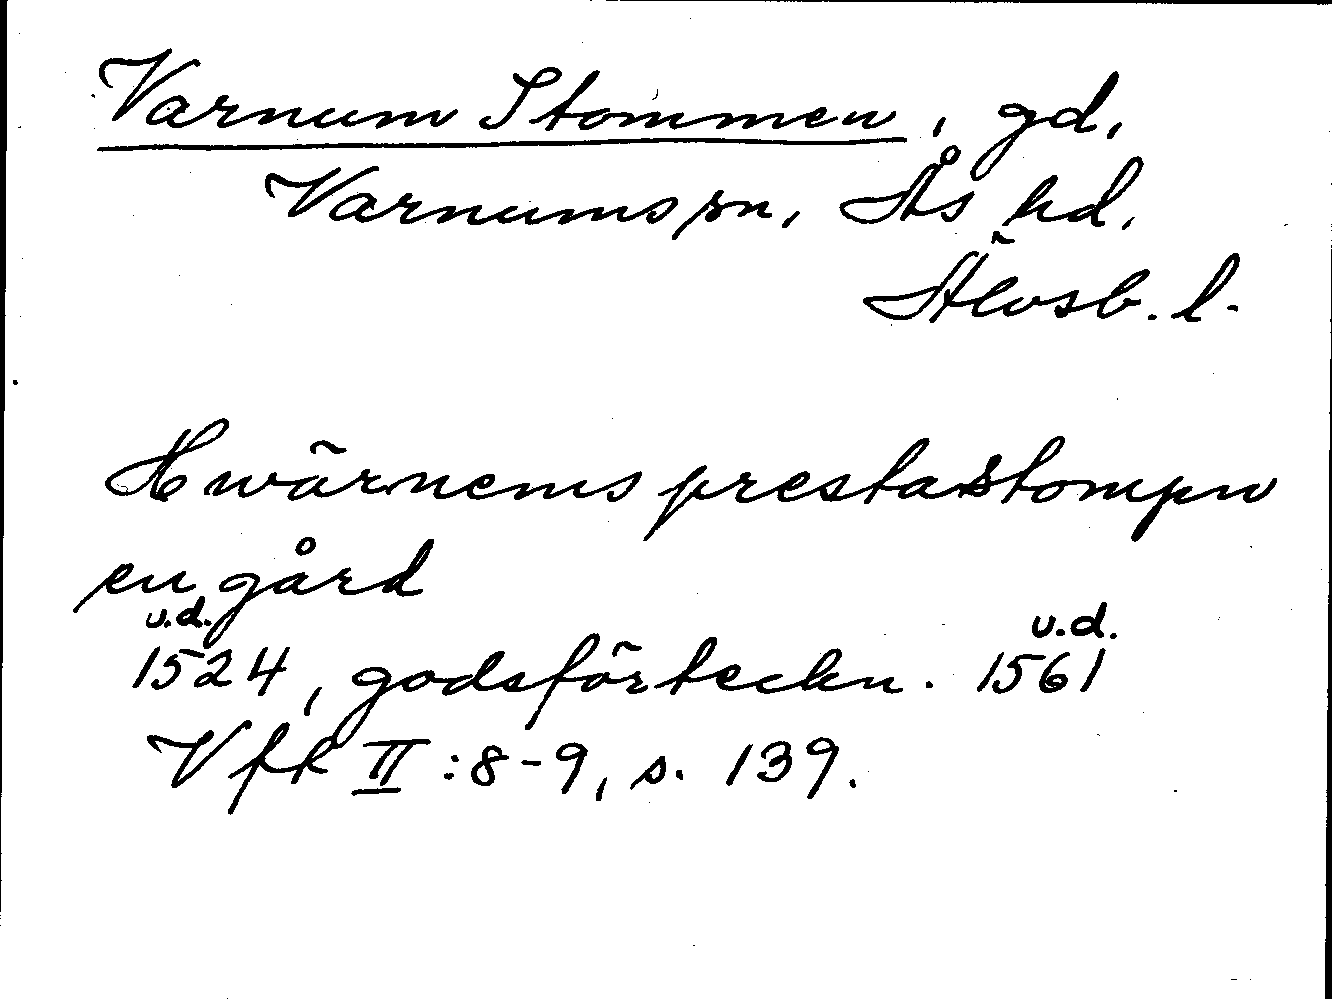 Varnum Stommen, gd,
Varnums sn, Ås hd,
Älvsb. l.
Hwärnems prestastompn
en gård
u.d. u.d.
1524, godsförteckn. 1561
Vfk II:8-9, s. 139.